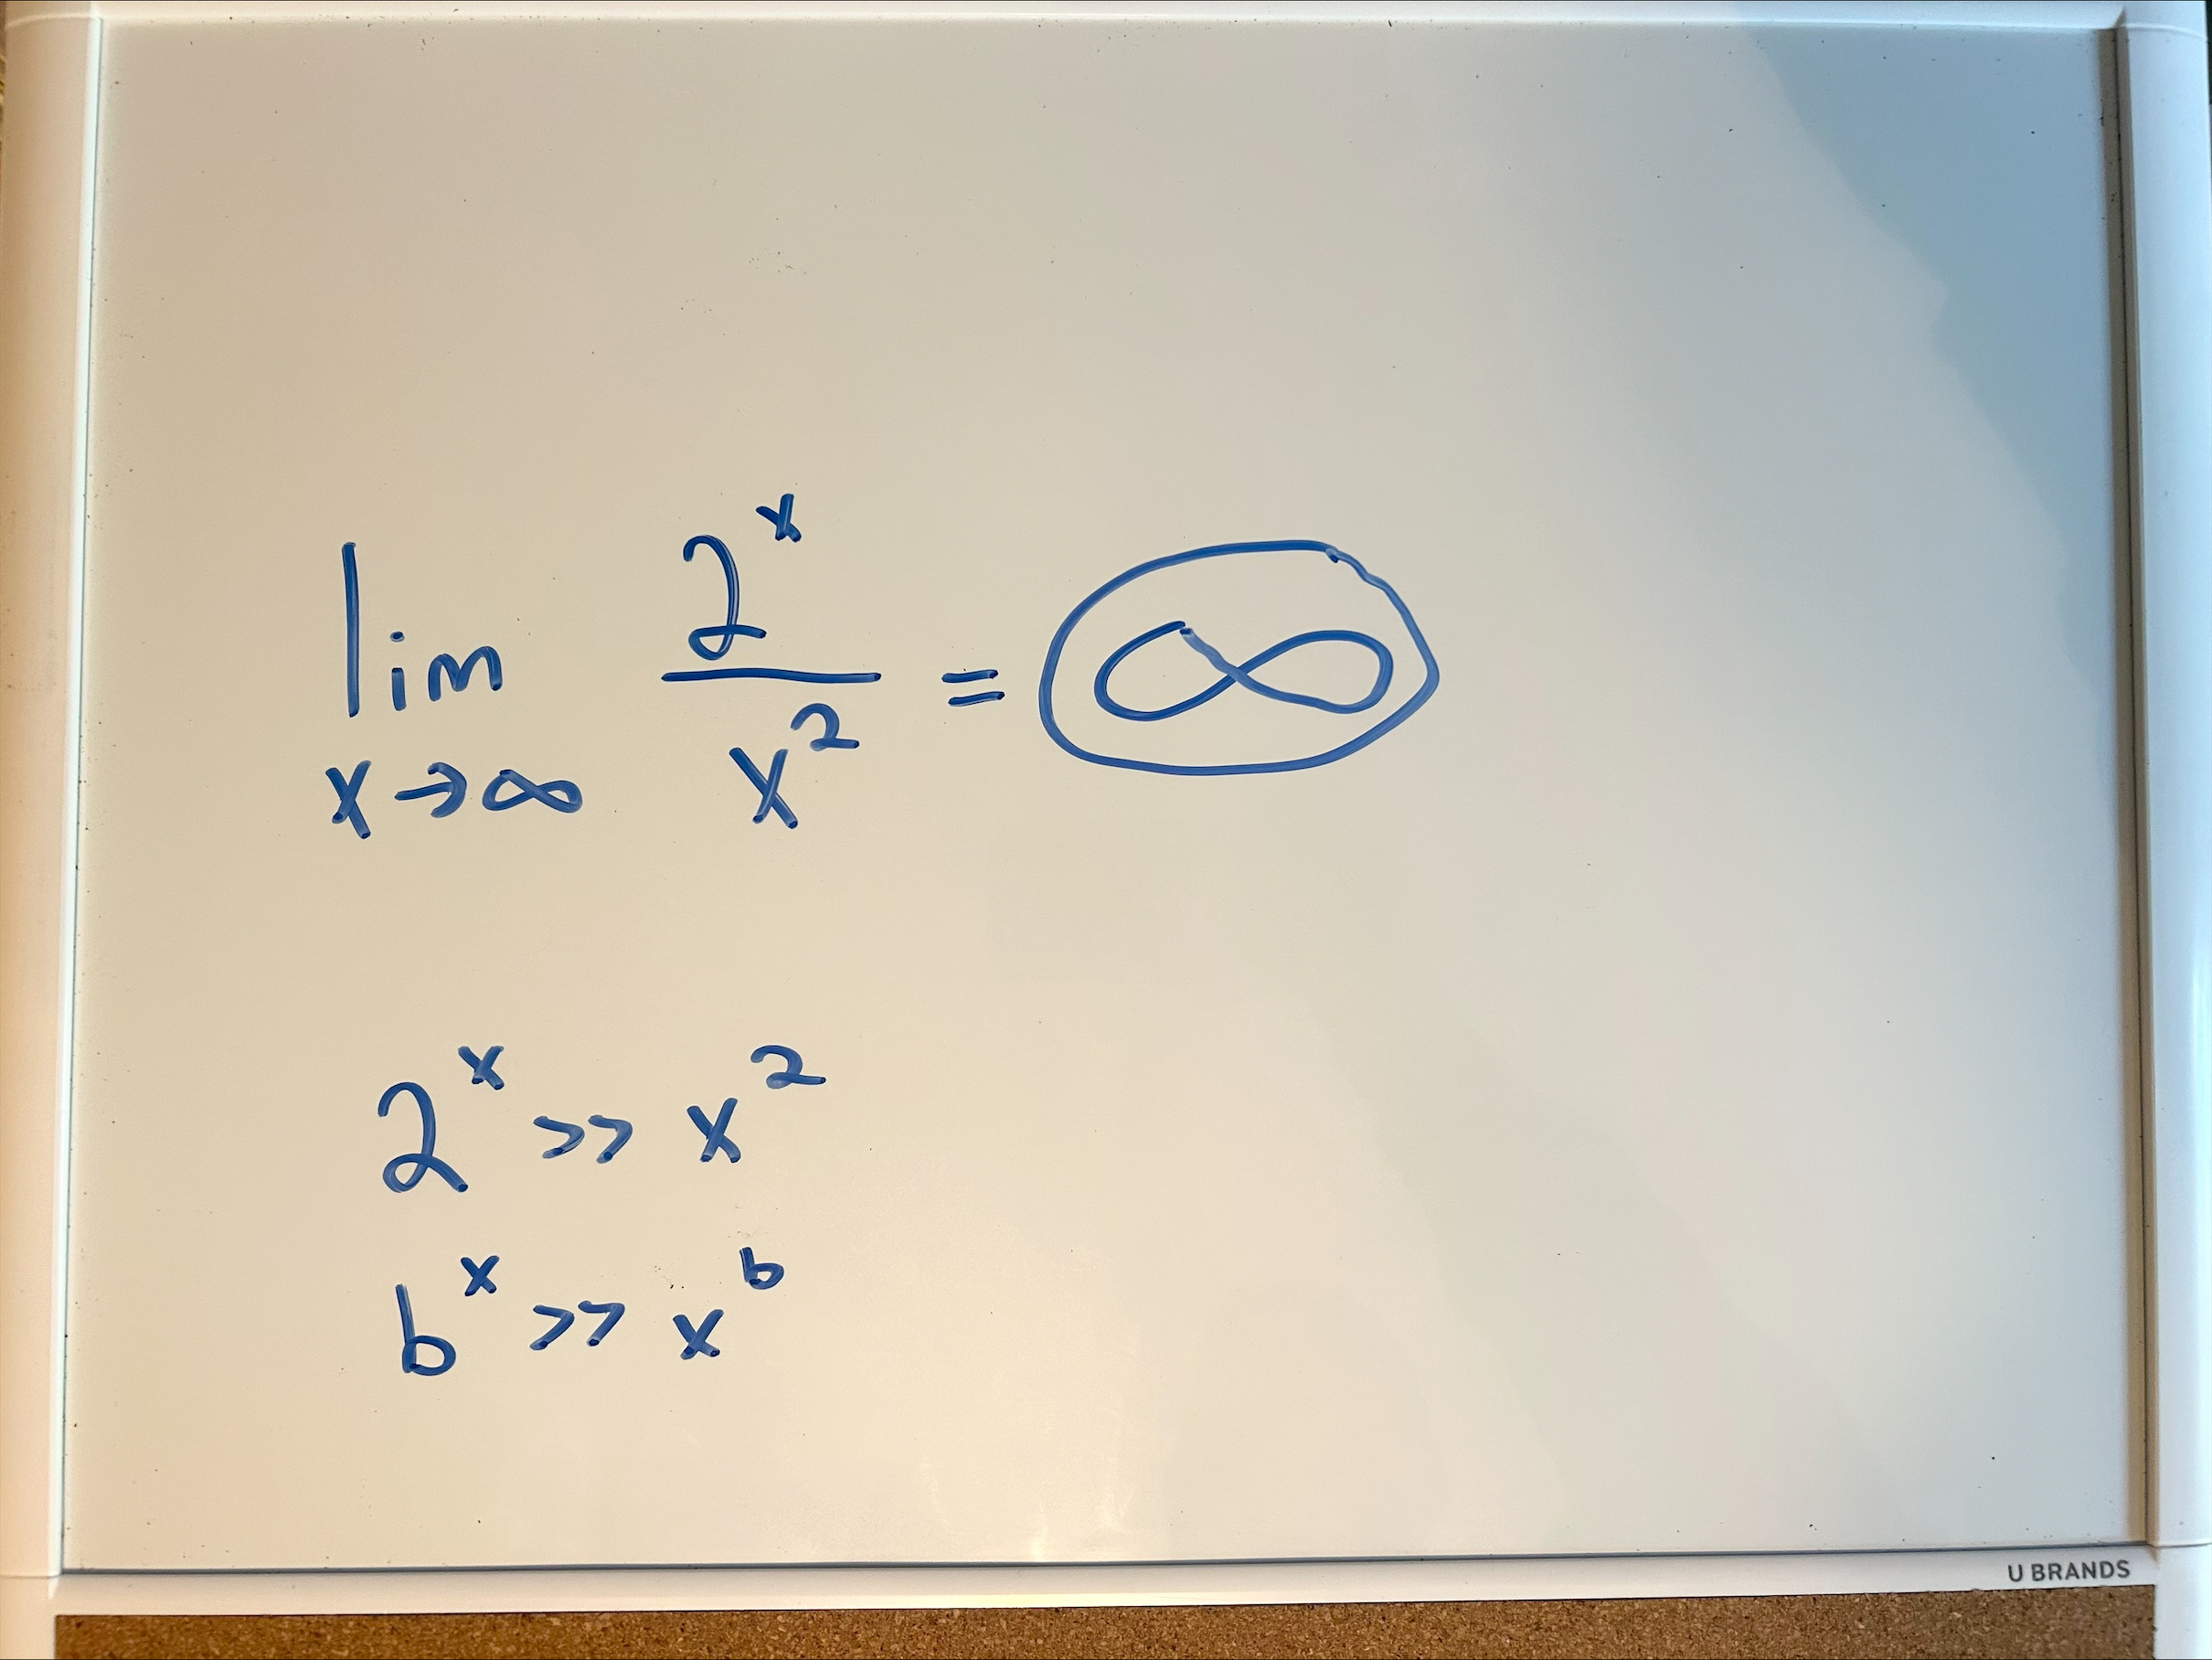 lim x→∞ 2^x / x^2 = ∞
2^x >> x^2
b^x >> x^b
U BRANDS